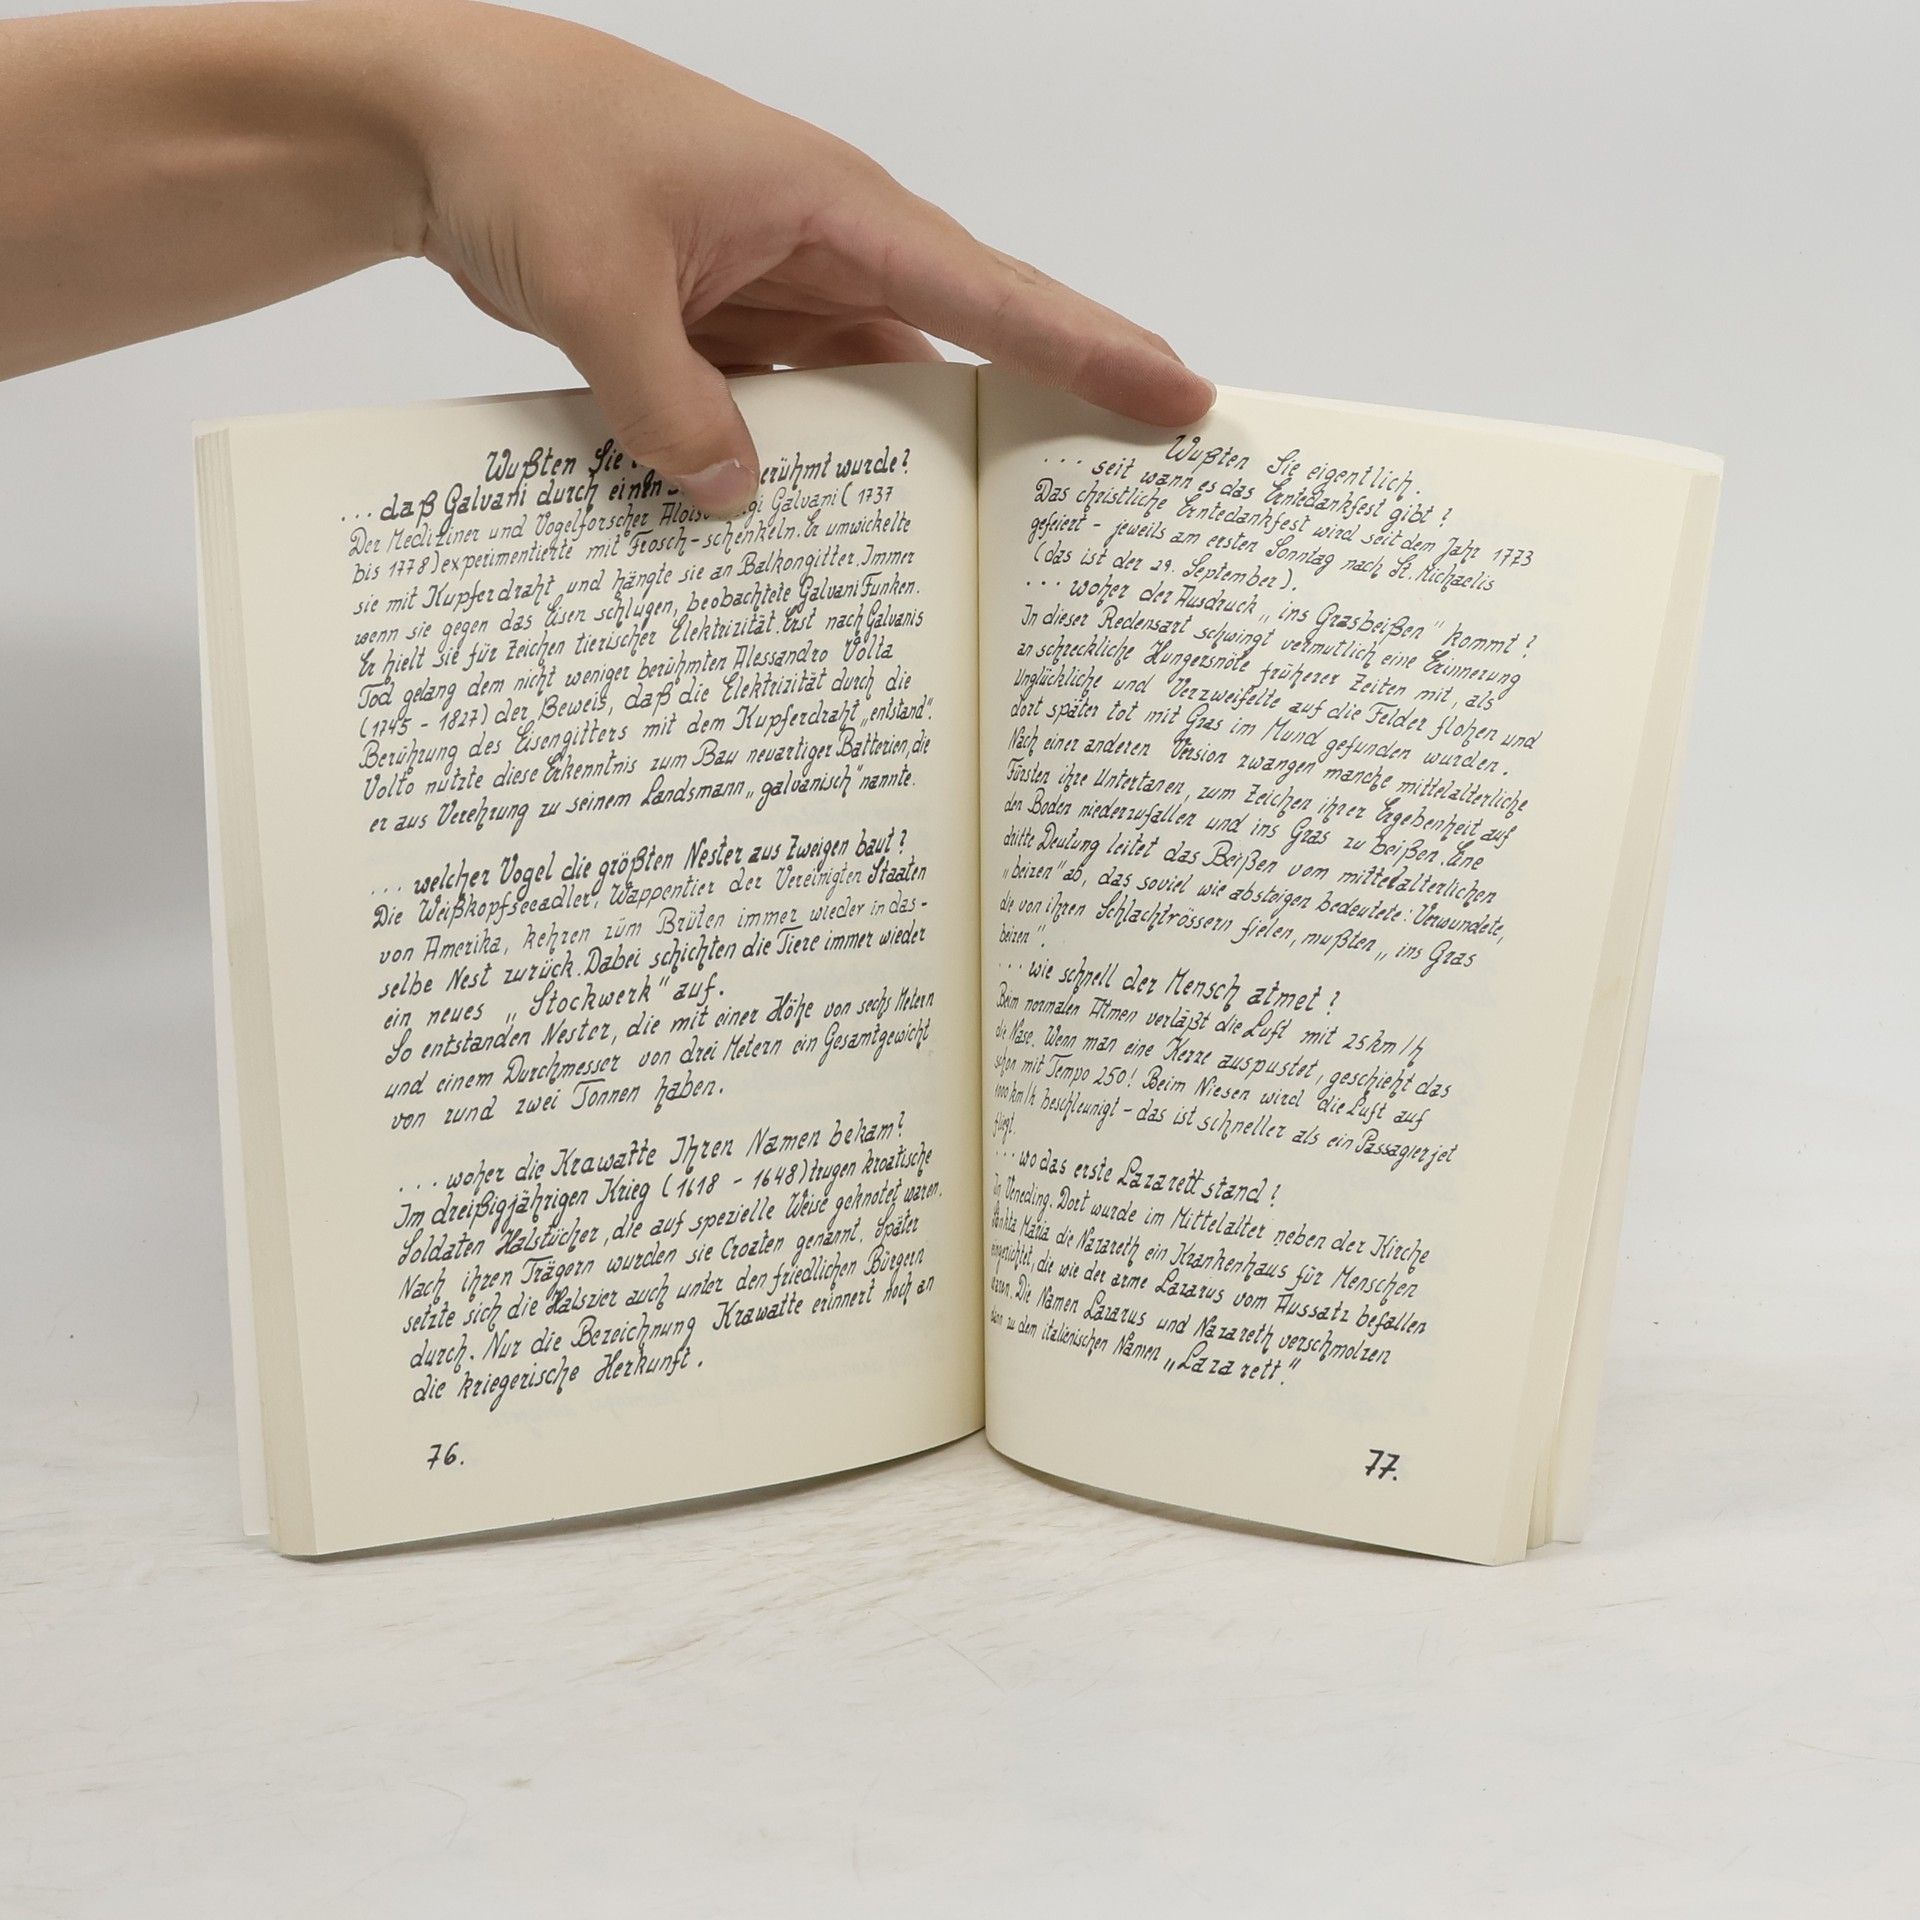 Wußten Sie
...daß Galvani durch einen berühmt wurde?
Der Mediziner und Vogelforscher Galvani (1737
bis 1778) experimentierte mit Frosch-schenkeln. Er umwickelte
sie mit Kupferdraht und hängte sie an Balkongitter. Immer
wenn sie gegen das Eisen schlugen, beobachtete Galvani Funken.
Er hielt sie für Zeichen tierischer Elektrizität. Erst nach Galvanis
Tod gelang dem nicht weniger berühmten Alessandro Volta
(1745 - 1827) der Beweis, daß die Elektrizität durch die
Berührung des Eisengitters mit dem Kupferdraht „entstand".
Volto nutzte diese Erkenntnis zum Bau neuartiger Batterien, die
er aus Verehrung zu seinem Landsmann „galvanisch" nannte.
... welcher Vogel die größten Nester aus Zweigen baut?
Die Weißkopfseeadler, Wappentier der Vereinigten Staaten
von Amerika, kehren züm Brüten immer wieder in das-
selbe Nest zurück. Dabei schichten die Tiere immer wieder
ein neues „Stockwerk" auf.
So entstanden Nester, die mit einer Höhe von sechs Metern
und einem Durchmesser von drei Metern ein Gesamtgewicht
von rund zwei Tonnen haben.
... woher die Krawatte Ihren Namen bekam?
Im dreißigjährigen Krieg (1618 - 1648) trugen kroatische
Soldaten Halstücher, die auf spezielle Weise geknotet waren.
Nach ihren Trägern wurden sie Croaten genannt. Später
setzte sich die Halszier auch unter den friedlichen Bürgern
durch. Nur die Bezeichnung Krawatte erinnert noch an
die kriegerische Herkunft.
76.
Wußten Sie eigentlich.
... seit wann es das Erntedankfest gibt?
Das christliche Erntedankfest wird seit dem Jahr 1773
gefeiert - jeweils am ersten Sonntag nach St. Michaelis
(das ist der 29. September).
... woher der Ausdruck „ins Grasbeißen" kommt?
In dieser Redensart schwingt vermutlich eine Erinnerung
an schreckliche Hungersnöte früherer Zeiten mit, als
Unglückliche und Verzweifelte auf die Felder flohen und
dort später tot mit Gras im Mund gefunden wurden.
Nach einer anderen Version zwangen manche mittelalterliche
Fürsten ihre Untertanen, zum Zeichen ihrer Ergebenheit auf
den Boden niederzufallen und ins Gras zu beißen. Eine
dritte Deutung leitet das Beißen vom mittelalterlichen
„beizen" ab, das soviel wie absteigen bedeutete: Verwundete,
die von ihren Schlachtrössern fielen, mußten „ins Gras
beizen".
... wie schnell der Mensch atmet?
Beim normalen Atmen verläßt die Luft mit 25 km/h
die Nase. Wenn man eine Kerze auspustet, geschieht das
schon mit Tempo 250! Beim Niesen wird die Luft auf
1000 km/h beschleunigt - das ist schneller als ein Passagierjet
fliegt.
... wo das erste Lazarett stand?
In Veneding. Dort wurde im Mittelalter neben der Kirche
Sankta Maria die Nazareth ein Krankenhaus für Menschen
eingerichtet, die wie der arme Lazarus vom Aussatz befallen
waren. Die Namen Lazarus und Nazareth verschmolzen
dann zu dem italienischen Namen „Lazarett."
77.